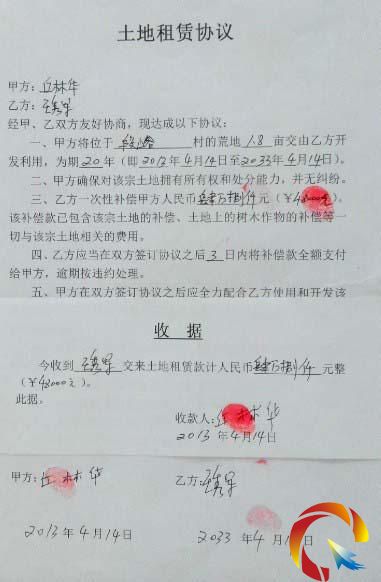 土地租赁协议
甲方：丘林华
乙方：
经甲、乙双方友好协商，现达成以下协议：
一、甲方将位于 村的荒地 1.8 亩交由乙方开
发利用，为期 20 年（即 2013 年 4 月 14 日至 2033 年 4 月 14 日）。
二、甲方确保对该宗土地拥有所有权和处分能力，并无纠纷。
三、乙方一次性补偿甲方人民币肆万捌仟元（￥48000元）。
该补偿款已包含该宗土地的补偿、土地上的树木作物的补偿等一
切与该宗土地相关的费用。
四、乙方应当在双方签订协议之后 3 日内将补偿款全额支付
给甲方，逾期按违约处理。
五、甲方在双方签订协议之后应全力配合乙方使用和开发该
收 据
今收到 交来土地租赁款计人民币肆万捌仟元整
（￥48000元）。
此据。
收款人：丘林华
2013 年 4 月 14 日
甲方：丘林华 乙方：
2013 年 4 月 14 日 2033 年 4 月 1 日